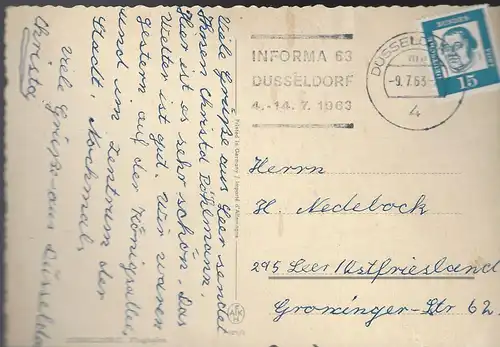 Viele Grüße aus Leer sendet
Ihnen Christa Pöhlmann.
Hier ist es sehr schön. Das
Wetter ist gut. Wir waren
gestern auf der Königsallee,
und im Zentrum der
Stadt. Nochmal,
viele Grüße aus Düsseldorf
Christa
Printed in Germany / Imprimé d'Allemagne
INFORMA 63
DÜSSELDORF
4.-14.7.1963
DÜSSELDO
-9.7.63-
4
15
Herrn
H. Nedebock
295 Leer/Ostfriesland
Groninger-Str 62.